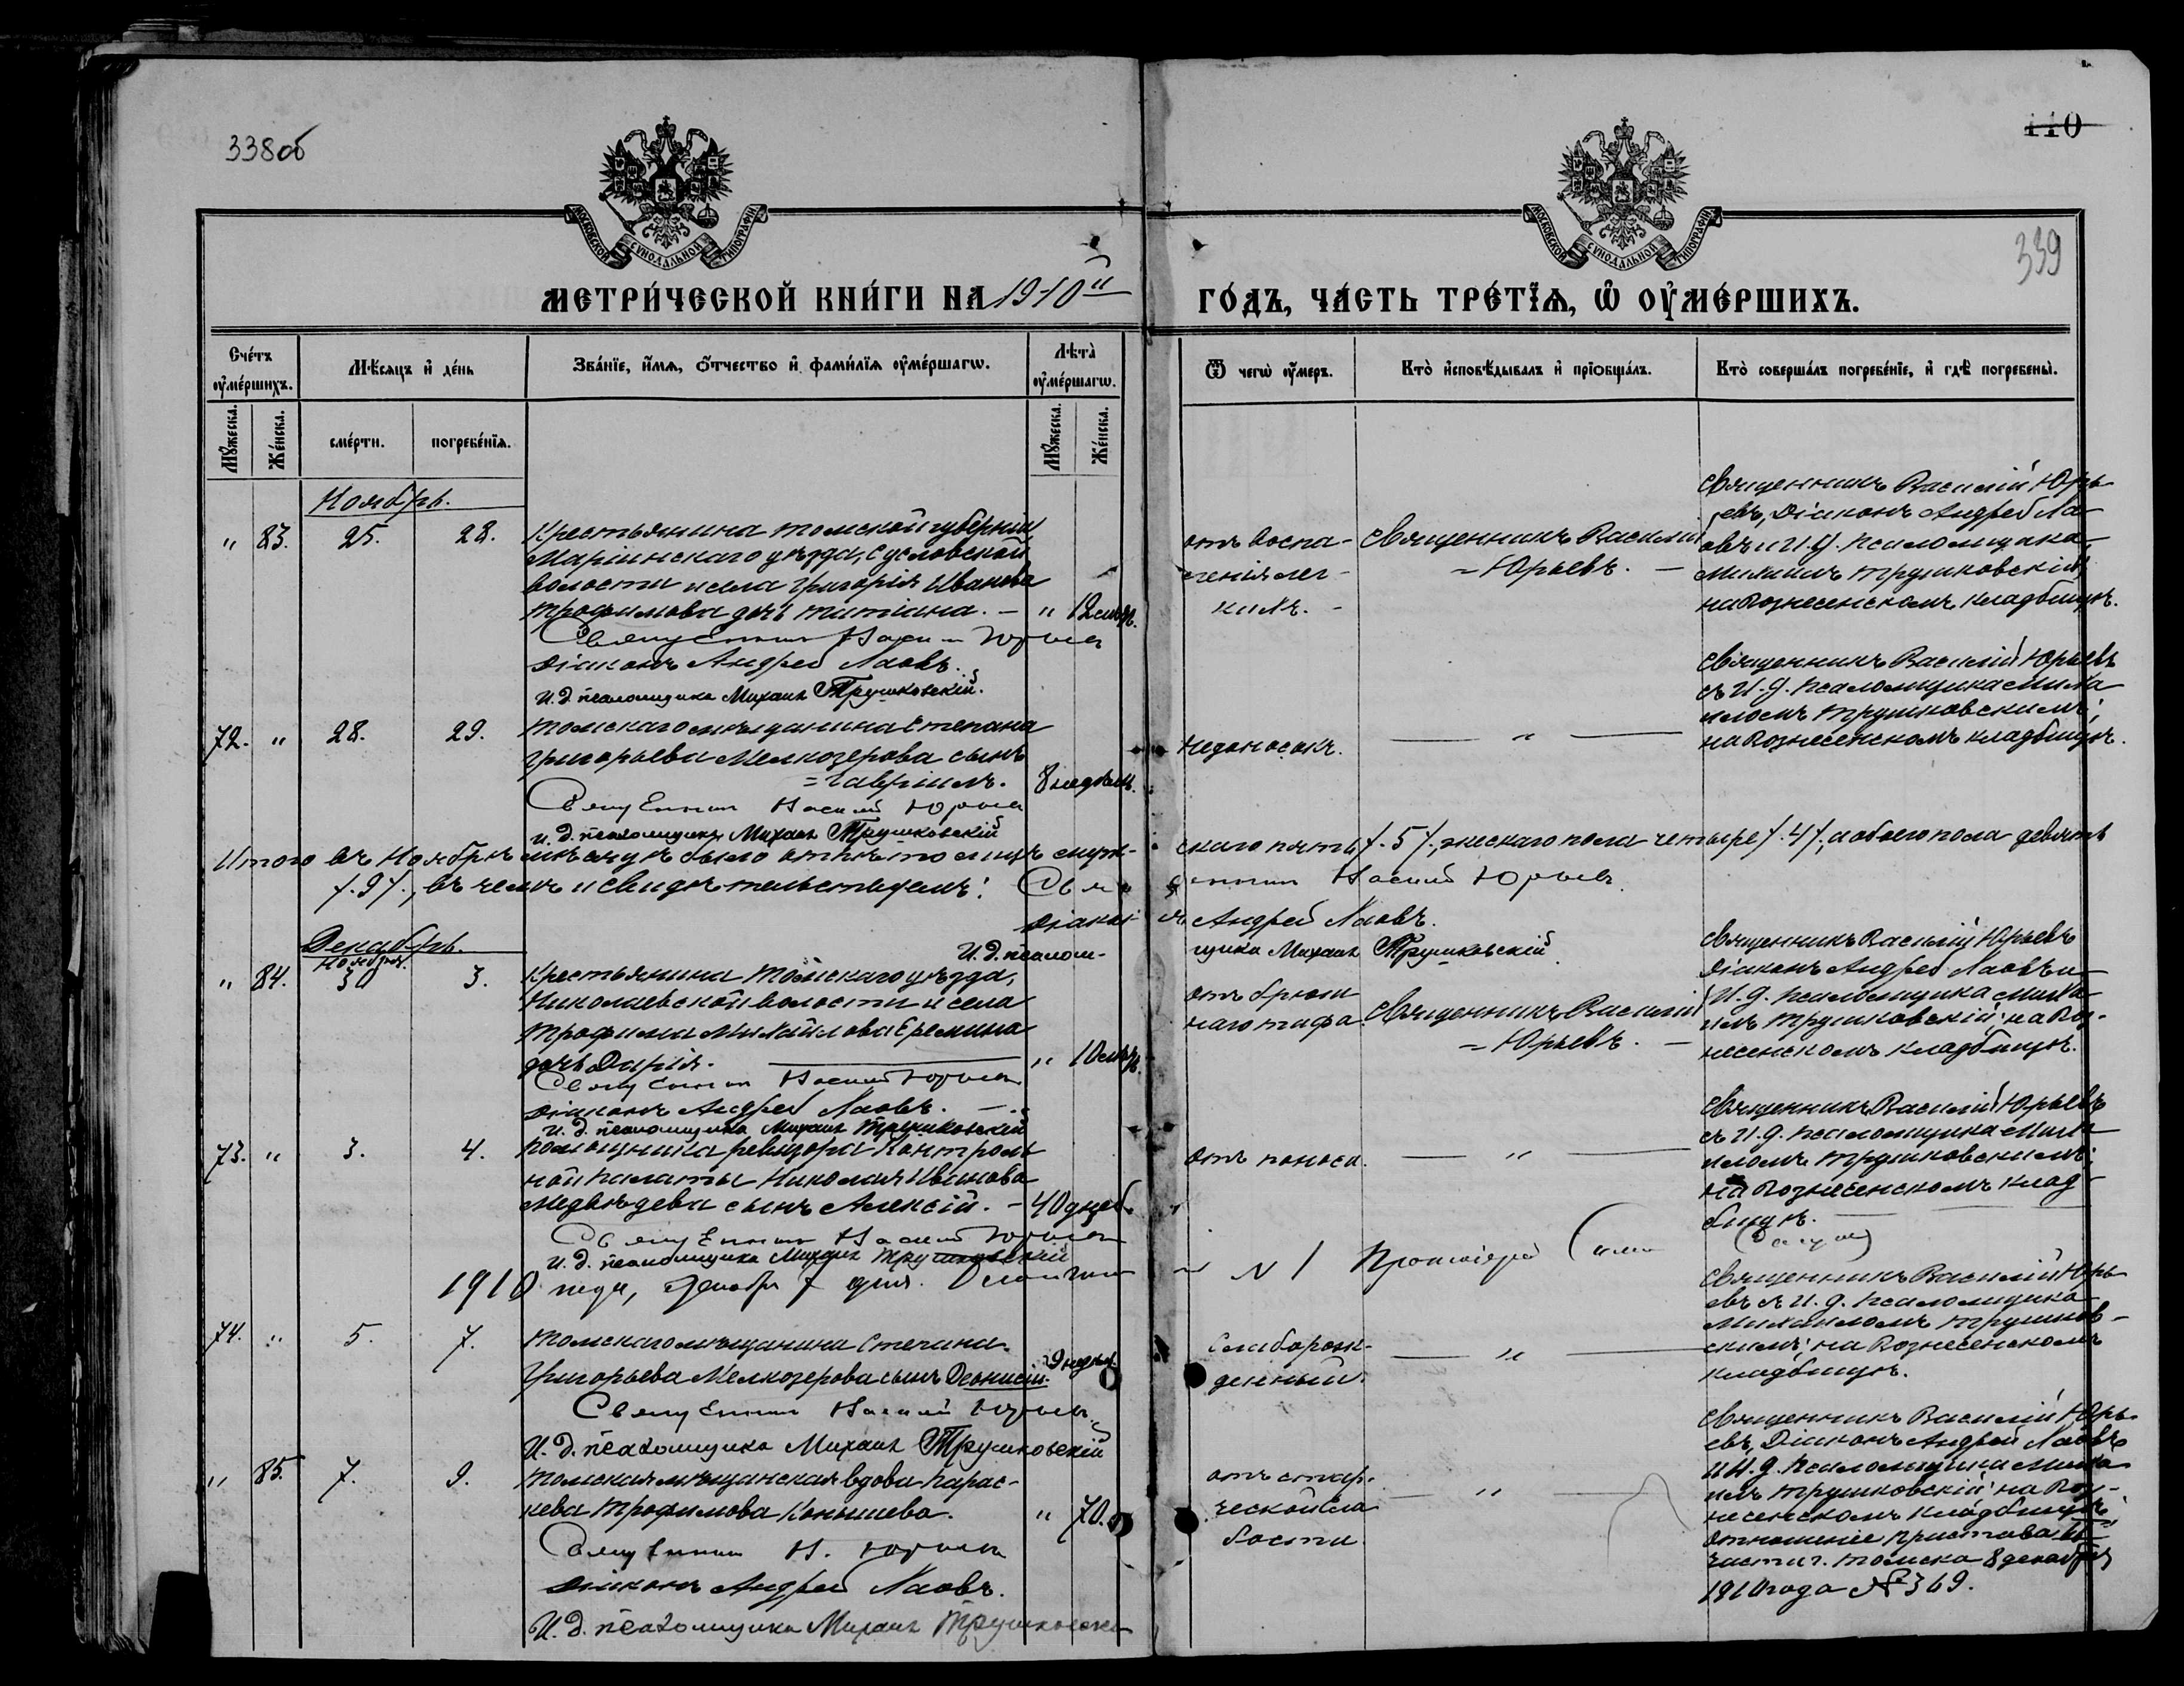 338об
110
339
МОСКОВСКОЙ СУНОДАЛЬНОЙ ТИПОГРАФІИ
МОСКОВСКОЙ СУНОДАЛЬНОЙ ТИПОГРАФІИ
МЕТРИ́ЧЕСКОЙ КНИ́ГИ НА 1910й
ГО́ДЪ, ЧА́СТЬ ТРЕ́ТЇѦ, Ѽ ОУ҆МЕ́РШИХЪ.
Сче́тъ оу҆ме́ршихъ.
Мѣ́сяцъ и҆ де́нь
Зва́нїе, и҆́мѧ, ѻ҆́тчество и҆ фами́лїѧ оу҆ме́ршагѡ.
Лѣта̀ оу҆ме́ршагѡ.
Ѿ чегѡ̀ оу҆́меръ.
Кто̀ и҆сповѣ́дывалъ и҆ прїѡбща́лъ.
Кто̀ соверша́лъ погребе́нїе, и҆ гдѣ̀ погребены̀.
Мꙋ́жеска.
Же́нска.
сме́рти.
погребе́нїѧ.
Мꙋ́жеска.
Же́нска.
Ноябрь.
" 83. 25. 28.
Крестьянина Томской губерніи,
Маріинскаго уѣзда, Сусловской
волости и села Григорія Иванова
Трофимова дочь Татіана. — " 12 мѣсяц.
Священникъ Василій Юрьевъ
Діаконъ Андрей Лаовъ.
И. д. псаломщика Михаилъ Трушковскій.
отъ воспа-
ленія лег-
кихъ.
Священникъ Василій
= Юрьевъ. —
Священникъ Василій Юрь-
евъ, Діаконъ Андрей Ла-
овъ и И. д. псаломщика
Михаилъ Трушковскій;
на Вознесенскомъ кладбищѣ.
72. " 28. 29.
Томскаго мѣщанина Степана
Григорьева Мелкозерова сынъ
= Гавріилъ. 8 недѣль.
Священникъ Василій Юрьевъ
И. д. псаломщика Михаилъ Трушковскій
недоносокъ.
— " —
Священникъ Василій Юрьевъ
съ И. д. псаломщика Миха-
иломъ Трушковскимъ;
на Вознесенскомъ кладбищѣ.
Итого въ Ноябрѣ мѣсяцѣ было отпѣто лицъ муж-
скаго пять /.5/., женскаго пола четыре /.4/., а обоего пола девять
/.9/., въ чемъ и свидѣтельствуемъ: Священникъ Василій Юрьевъ.
Діаконъ Андрей Лаовъ.
И. д. псаломщика Михаилъ Трушковскій
Декабрь.
Ноября.
" 84. 30 3.
Крестьянина Томскаго уѣзда,
Николаевской волости и села
Трофима Михайлова Еремина
дочь Дарія. — " 10 мѣсяц.
Священникъ Василій Юрьевъ
Діаконъ Андрей Лаовъ. —
И. д. псаломщика Михаилъ Трушковскій
отъ брюш
наго тифа.
Священникъ Василій
= Юрьевъ. —
Священникъ Василій Юрьевъ
Діаконъ Андрей Лаовъ и
И. д. псаломщика Миха-
илъ Трушковскій; на Воз-
несенскомъ кладбищѣ.
73. " 3. 4.
Помощника ревизора Контроль
ной палаты Николая Иванова
Медвѣдева сынъ Алексій. — 40 дней.
Священникъ Василій Юрьевъ
И. д. псаломщика Михаилъ Трушковскій
отъ поноса.
— " —
Священникъ Василій Юрьевъ
съ И. д. псаломщика Миха-
иломъ Трушковскимъ;
на Вознесенскомъ клад-
бищѣ.
1910 года, Декабря 7 дня.
№ 1 Протоіерей
74. " 5. 7.
Томскаго мѣщанина Степана
Григорьева Мелкозерова сынъ Діонисій. 9 недѣль.
Священникъ Василій Юрьевъ
И. д. псаломщика Михаилъ Трушковскій
Слаборож-
денный.
— " —
Священникъ Василій Юрь-
евъ съ И. д. псаломщика
Михаиломъ Трушков-
скимъ; на Вознесенскомъ
кладбищѣ.
" 85. 7. 9.
Томская мѣщанская вдова Парас-
кева Трофимова Конышева. " 70.
Священникъ В. Юрьевъ
Діаконъ Андрей Лаовъ.
И. д. псаломщика Михаилъ Трушковскій
отъ стар-
ческой сла
бости.
— " —
Священникъ Василій Юрь-
евъ, Діаконъ Андрей Лаовъ
и И. д. псаломщика Миха-
илъ Трушковскій; на Воз-
несенскомъ кладбищѣ;
отношеніе Пристава
части г. Томска 8 декабря
1910 года № 369.